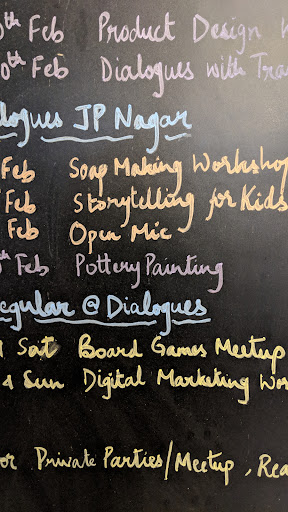 0th Feb Product Design
0th Feb Dialogues with Tra
logues JP Nagar
Feb Soap Making Workshop
Feb Storytelling for Kids
Feb Open Mic
th Feb Pottery Painting
egular @ Dialogues
Sat Board Games Meetup
& Sun Digital Marketing Wor
or Private Parties/Meetup, Rea